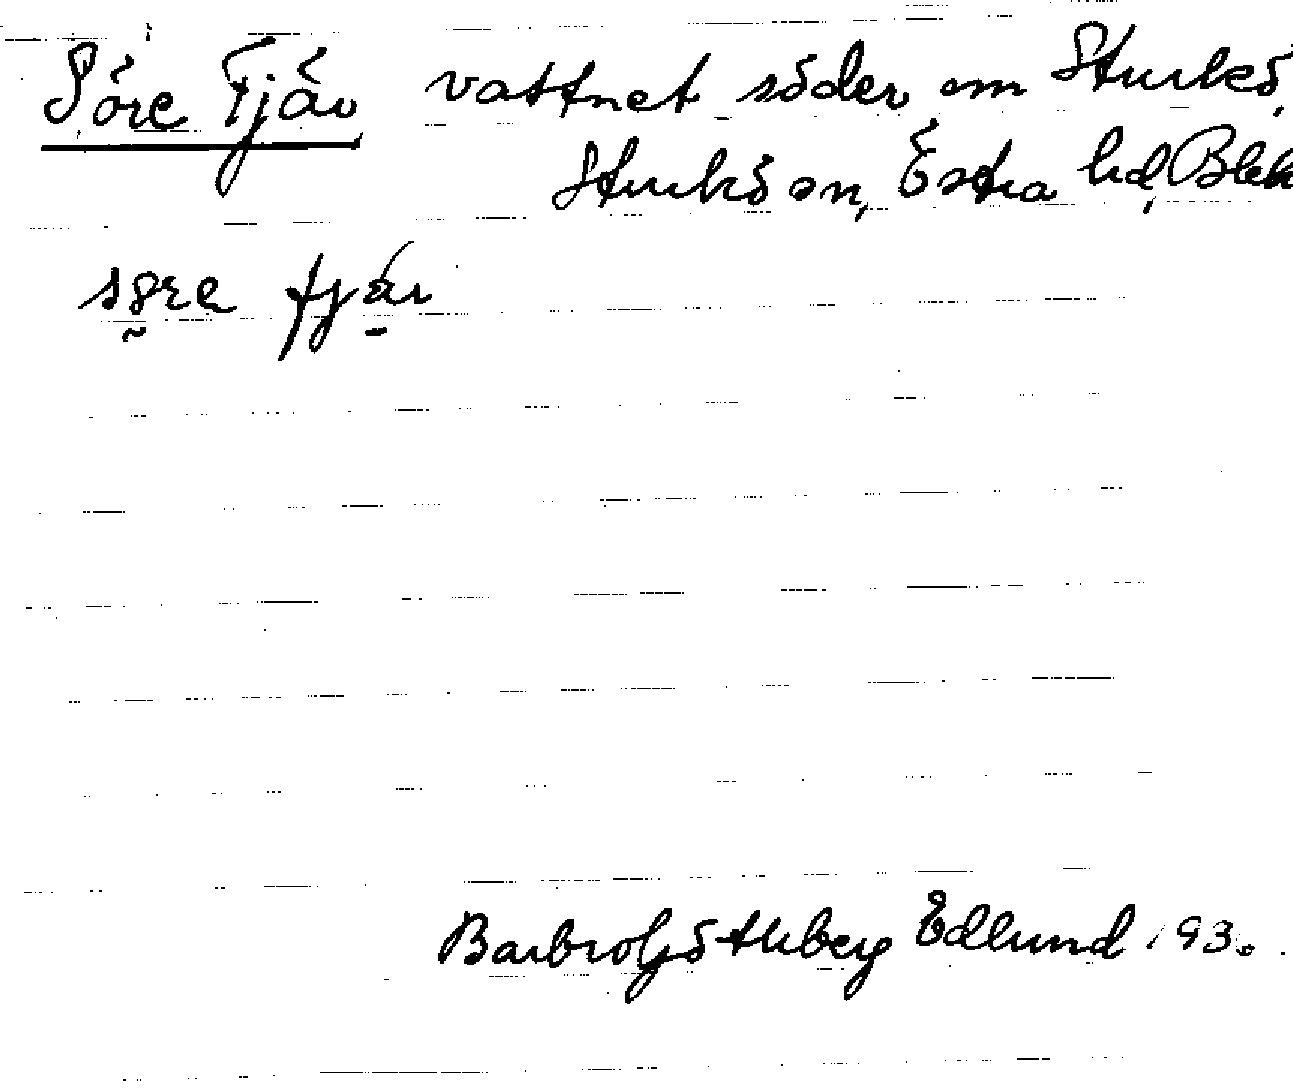 Söre Fjär vattnet söder om Sturkö,
Sturkö sn, Östra hd, Blek
Barbro Götherberg Edlund 193.